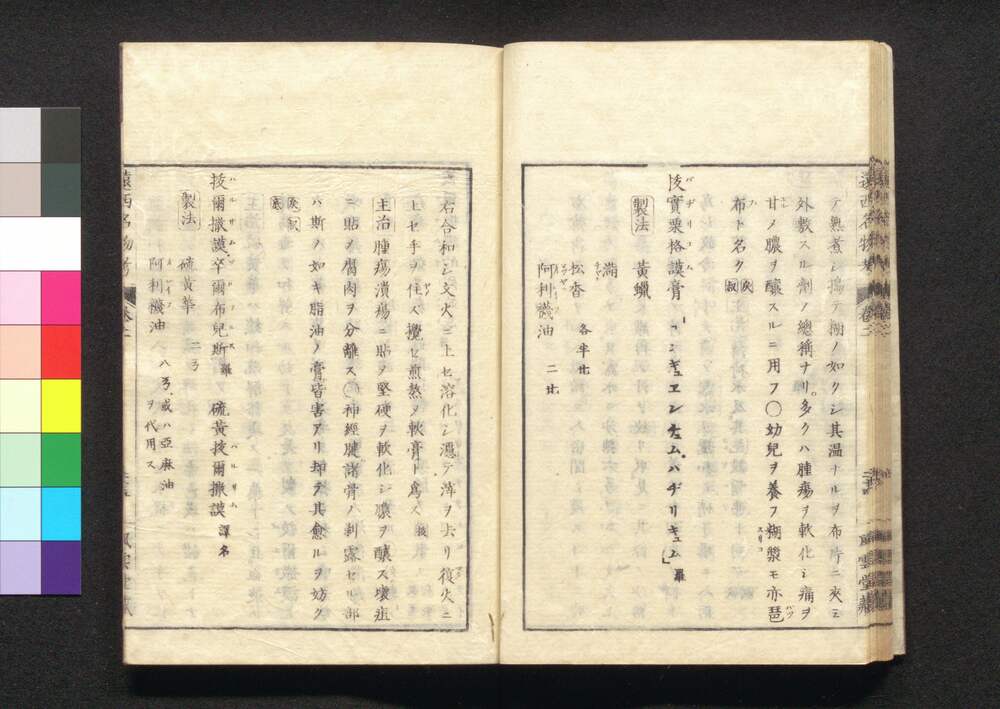 テ熟煮シ搗テ糊ノ如クシ其温ナルヲ布片ニ夾ミ
外敷スル劑ノ總稱ナリ。多クハ腫瘍ヲ軟化シ痛ヲ
甘メ膿ヲ釀スルニ用フ〇幼兒ヲ養フ糊漿モ亦琶
布ト名ク
實栗格謨膏 「ユンギュエンチュム、バヂリキュム」羅
製法 黃蠟
瀝
松香 各半
阿利襪油 二
右合和シ文火ニ上セ溶化シ濾テ滓ヲ去リ復火ニ
上セ手ヲ住ス攪セ煎熬メ軟膏ト爲ス
主治 腫瘍潰瘍ニ貼ヲ堅硬ヲ軟化シ膿ヲ釀ス壞疽
ニ貼ヲ腐肉ヲ分離ス〇神經腱諸骨ノ剥露セル部
ハ斯ノ如キ脂油ノ膏皆害アリ却テ其愈ルヲ妨ク
拔爾撒謨、卒爾布兒斯 羅 硫黃拔爾撒謨 譯名
製法 硫黃華 二
阿利襪油 八 或ハ亞麻油ヲ代用ス
遠西名物考 卷二